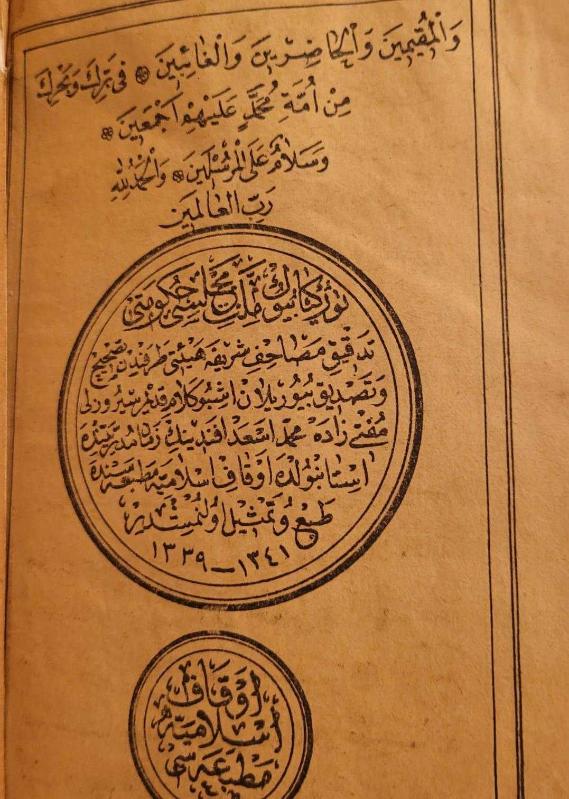 وَالْمُقِيمِينَ وَالْحَاضِرِينَ وَالْغَائِبِينَ ❁ فِى بَرِّكَ وَبَحْرِكَ
مِنْ اُمَّةِ مُحَمَّدٍ عَلَيْهِمْ اَجْمَعِينَ ❁
وَسَلَامٌ عَلَى الْمُرْسَلِينَ ❁ وَالْحَمْدُ لِلّٰهِ
رَبِّ الْعَالَمِينَ
توركيا بيوك ملت مجلسى حكومتى
تدقيق مصاحف شريفه هيئتى طرفندن تصحيح
وتصديق بيوريلان اشبو كلام قديم سيروزلى
مفتى زاده محمد اسعد افندينك زمان مديريتنده
استانبولده اوقاف اسلاميه مطبعه سنده
طبع وتمثيل اولنمشدر
١٣٣٩ — ١٣٤١
اوقاف
اسلاميه
مطبعه سى